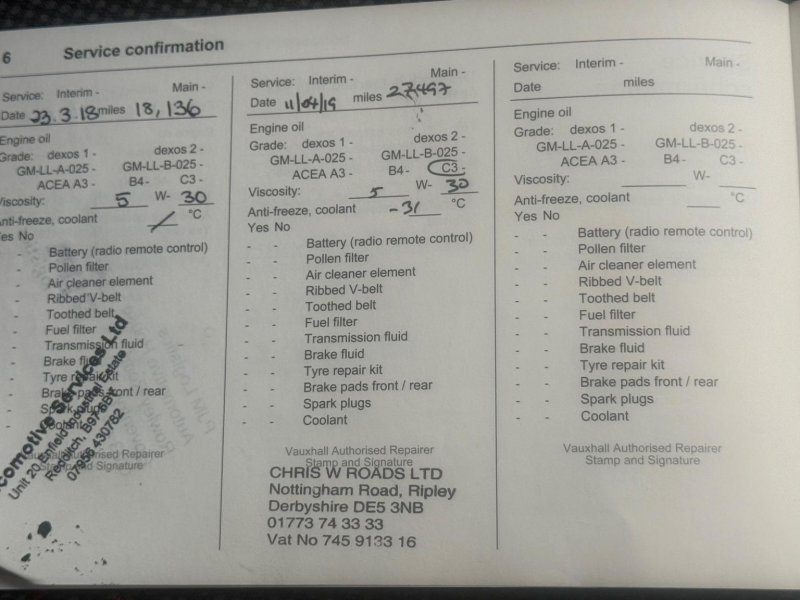 6 Service confirmation
Service: Interim - Main -
Date 23.3.18 miles 18,136
Engine oil
Grade: dexos 1 - dexos 2 -
GM-LL-A-025 - GM-LL-B-025 -
ACEA A3 - B4- C3 -
Viscosity: 5 W- 30
Anti-freeze, coolant °C
Yes No
- Battery (radio remote control)
- Pollen filter
- Air cleaner element
- Ribbed V-belt
- Toothed belt
- Fuel filter
- Transmission fluid
- Brake fluid
- Tyre repair kit
- Brake pads front / rear
- Spark plugs
- Coolant
Vauxhall Authorised Repairer
Stamp and Signature
Services Ltd
Unit 20 Enfield Industrial Estate
Redditch, B97 6B
07956 430762
Service: Interim - Main -
Date 11/04/19 miles 27,497
Engine oil
Grade: dexos 1 - dexos 2 -
GM-LL-A-025 - GM-LL-B-025 -
ACEA A3 - B4- C3 -
Viscosity: 5 W- 30
Anti-freeze, coolant -31 °C
Yes No
- - Battery (radio remote control)
- - Pollen filter
- - Air cleaner element
- - Ribbed V-belt
- - Toothed belt
- - Fuel filter
- - Transmission fluid
- - Brake fluid
- - Tyre repair kit
- - Brake pads front / rear
- - Spark plugs
- - Coolant
Vauxhall Authorised Repairer
Stamp and Signature
CHRIS W ROADS LTD
Nottingham Road, Ripley
Derbyshire DE5 3NB
01773 74 33 33
Vat No 745 9133 16
Service: Interim - Main -
Date miles
Engine oil
Grade: dexos 1 - dexos 2 -
GM-LL-A-025 - GM-LL-B-025 -
ACEA A3 - B4 - C3 -
Viscosity: W-
Anti-freeze, coolant °C
Yes No
- - Battery (radio remote control)
- - Pollen filter
- - Air cleaner element
- - Ribbed V-belt
- - Toothed belt
- - Fuel filter
- - Transmission fluid
- - Brake fluid
- - Tyre repair kit
- - Brake pads front / rear
- - Spark plugs
- - Coolant
Vauxhall Authorised Repairer
Stamp and Signature